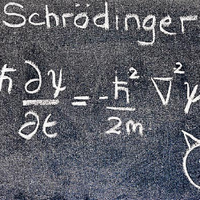 Schrödinger
ℏ ∂ψ/∂t = -ℏ²/2m ∇²ψ